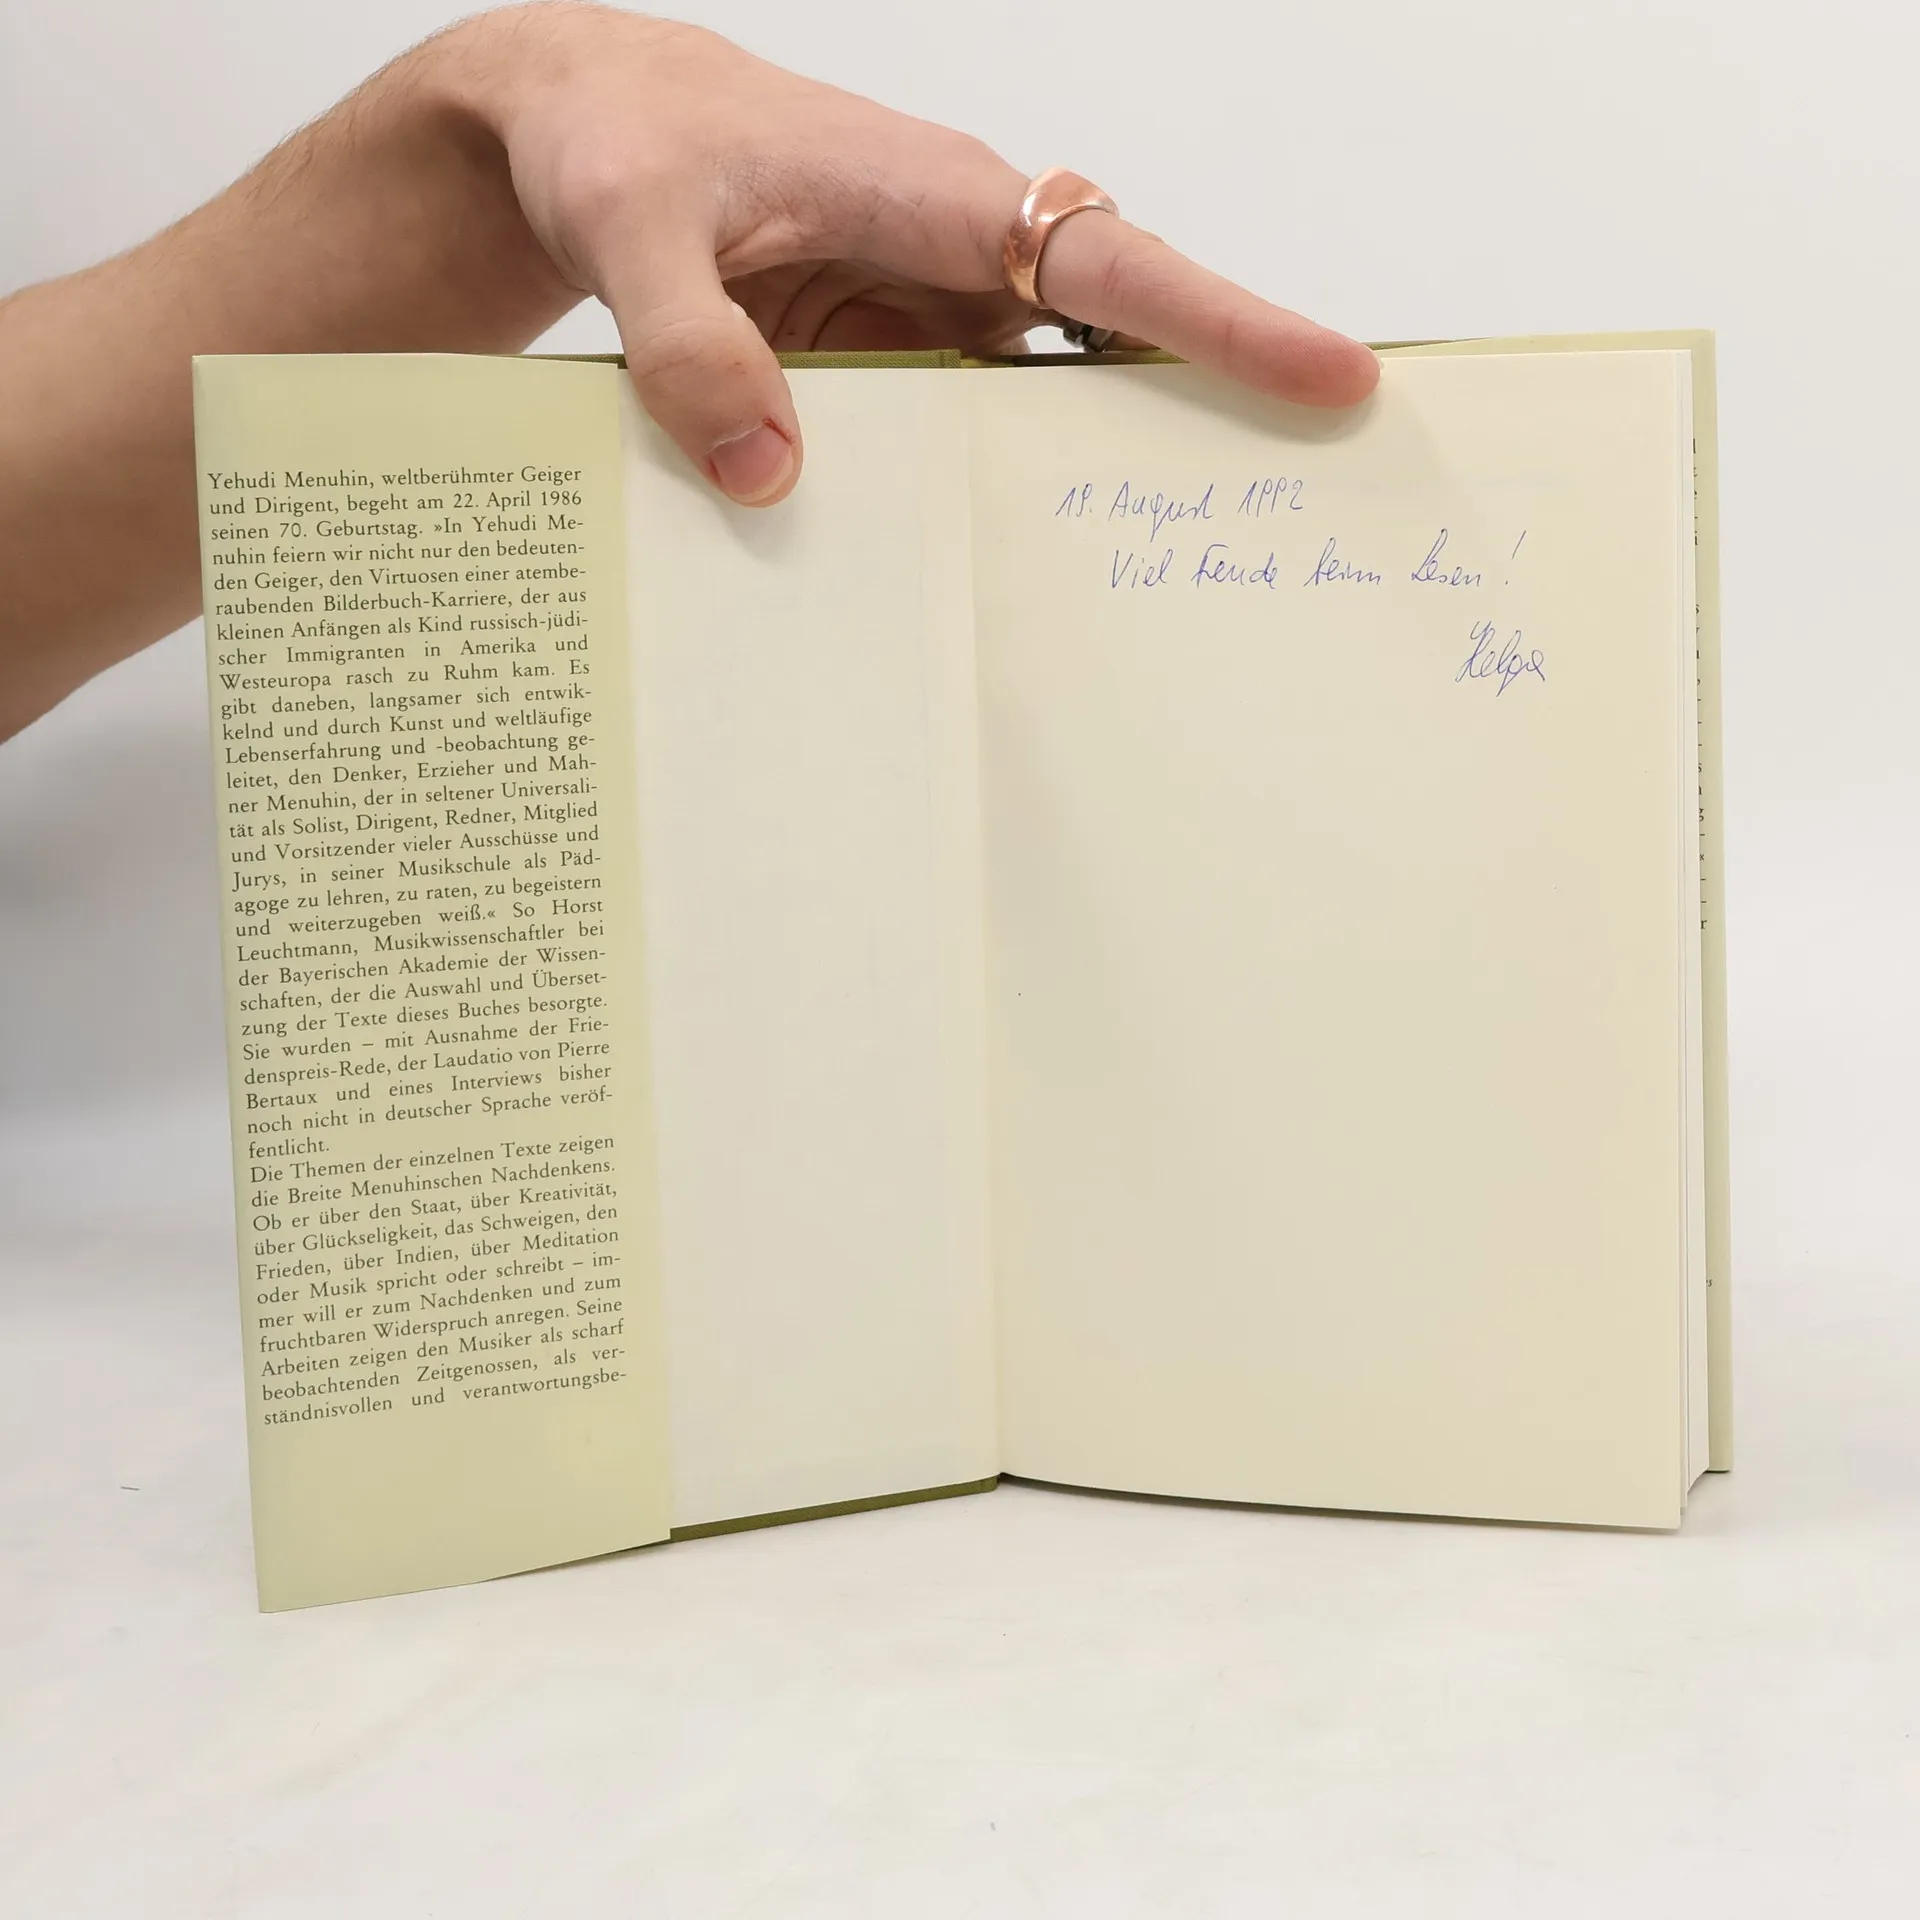 Yehudi Menuhin, weltberühmter Geiger
und Dirigent, begeht am 22. April 1986
seinen 70. Geburtstag. »In Yehudi Me-
nuhin feiern wir nicht nur den bedeuten-
den Geiger, den Virtuosen einer atembe-
raubenden Bilderbuch-Karriere, der aus
kleinen Anfängen als Kind russisch-jüdi-
scher Immigranten in Amerika und
Westeuropa rasch zu Ruhm kam. Es
gibt daneben, langsamer sich entwik-
kelnd und durch Kunst und weltläufige
Lebenserfahrung und -beobachtung ge-
leitet, den Denker, Erzieher und Mah-
ner Menuhin, der in seltener Universali-
tät als Solist, Dirigent, Redner, Mitglied
und Vorsitzender vieler Ausschüsse und
Jurys, in seiner Musikschule als Päd-
agoge zu lehren, zu raten, zu begeistern
und weiterzugeben weiß.« So Horst
Leuchtmann, Musikwissenschaftler bei
der Bayerischen Akademie der Wissen-
schaften, der die Auswahl und Überset-
zung der Texte dieses Buches besorgte.
Sie wurden – mit Ausnahme der Frie-
denspreis-Rede, der Laudatio von Pierre
Bertaux und eines Interviews bisher
noch nicht in deutscher Sprache veröf-
fentlicht.
Die Themen der einzelnen Texte zeigen
die Breite Menuhinschen Nachdenkens.
Ob er über den Staat, über Kreativität,
über Glückseligkeit, das Schweigen, den
Frieden, über Indien, über Meditation
oder Musik spricht oder schreibt – im-
mer will er zum Nachdenken und zum
fruchtbaren Widerspruch anregen. Seine
Arbeiten zeigen den Musiker als scharf
beobachtenden Zeitgenossen, als ver-
ständnisvollen und verantwortungsbe-
19. August 1992
Viel Freude beim Lesen!
Helga